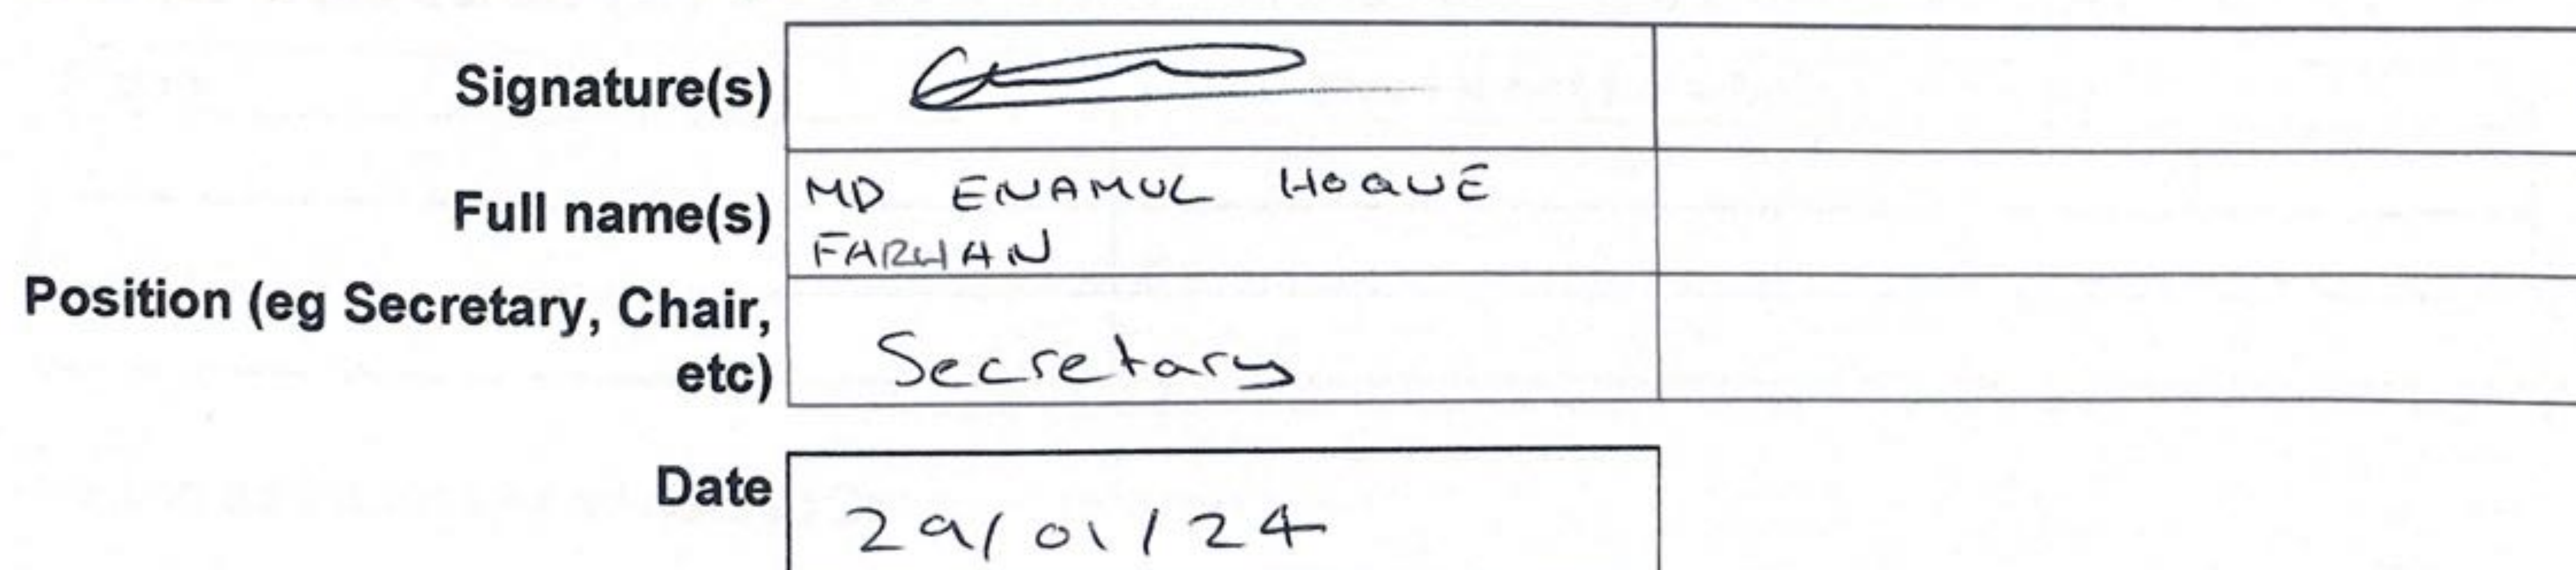 Signature(s)
Full name(s) MD ENAMUL HOQUE
FARHAN
Position (eg Secretary, Chair,
etc) Secretary
Date
29/01/24